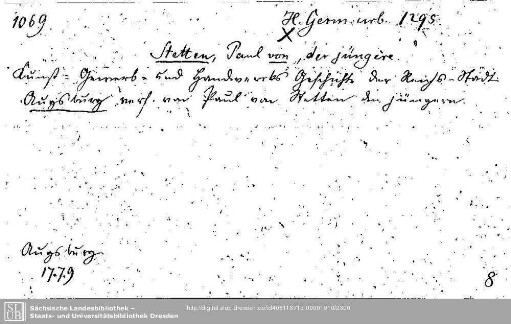 1069
H. Germ. urb. 1295
X
Stetten, Paul von, der jüngere.
Kunst- Gewerb- und Handwerks Geschichte der Reichs-Stadt
Augsburg verf. von Paul von Stetten dem jüngern.
Augsburg
1779
8
SLUB
Sächsische Landesbibliothek –
Staats- und Universitätsbibliothek Dresden